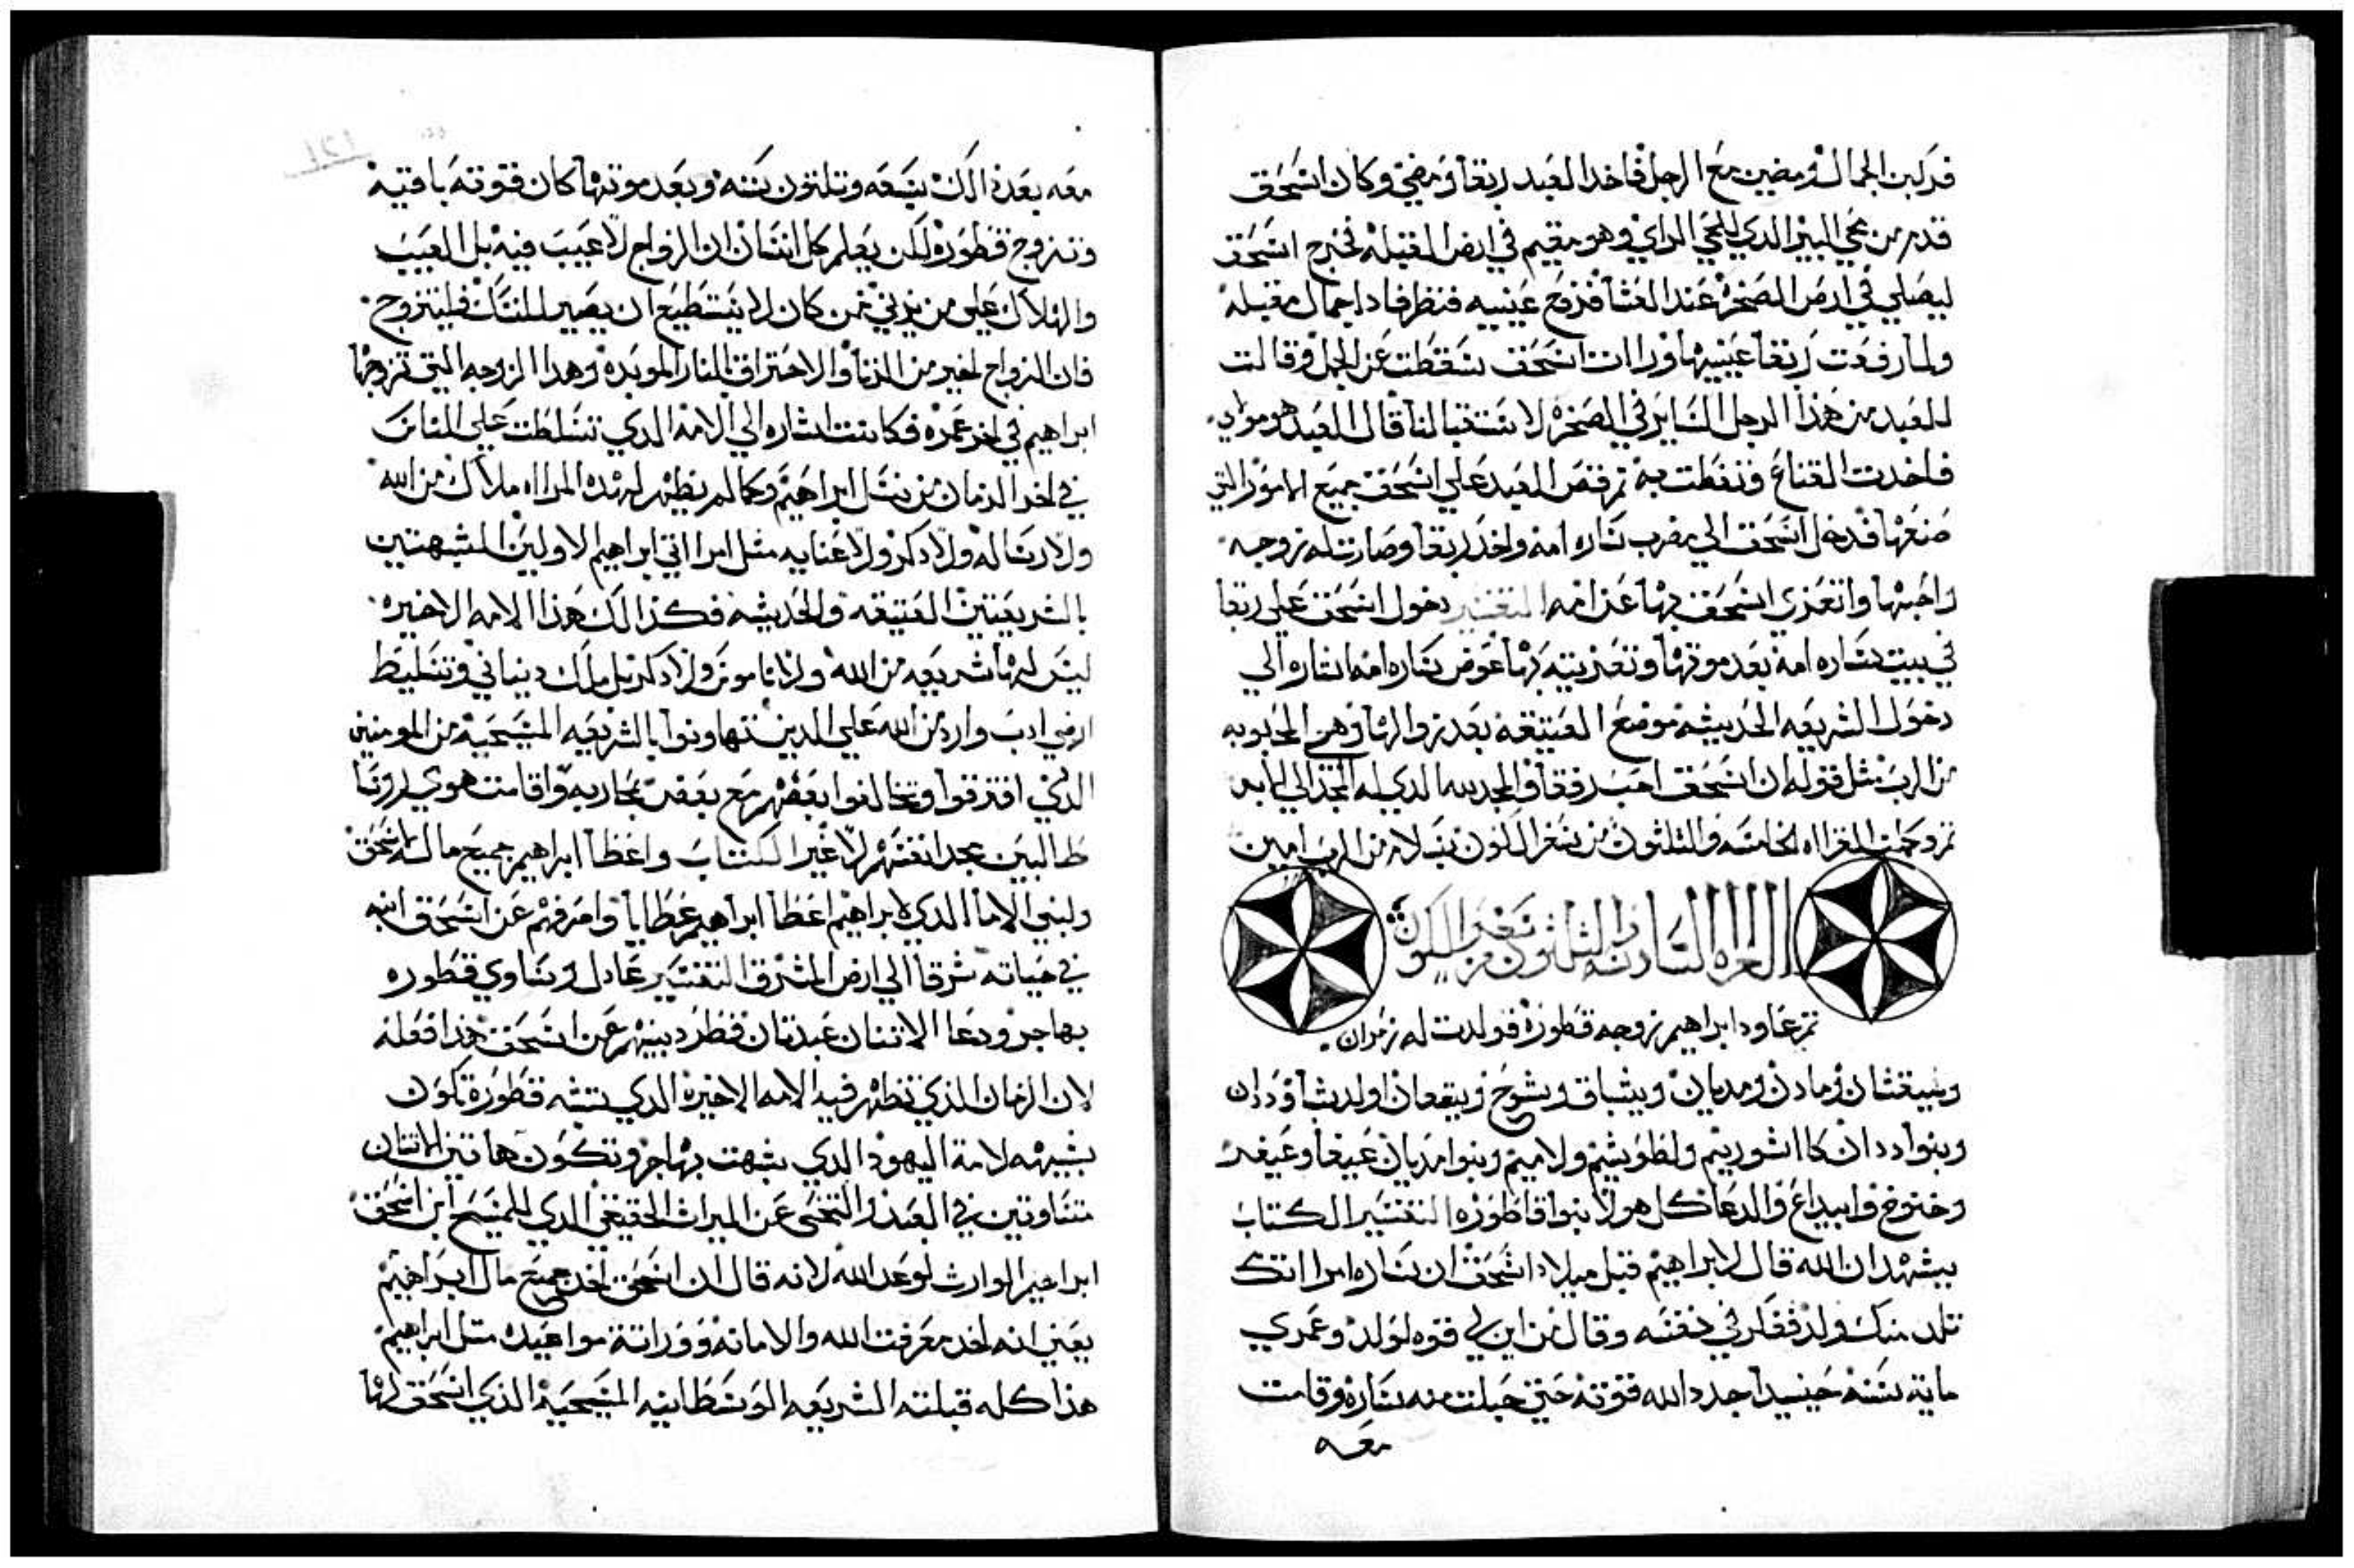 فركبن الجمال ومضين مع الرجل فاخد العبد ربقا ومضي وكان اسحق
قدم من نحي البير الدي للحي الراي وهو مقيم في ارض القبله فخرج اسحق
ليصلي في ارض الصخره عند العشا فرفع عينيه فنظر فادا جمال مقبله
ولما رفعت ربقا عينيها وراات اسحق سقطت عن الجمل وقالت
للعبد من هذا الرجل الساير في الصخره لاستقبالنا قال العبد هو مولاي
فاخدت القناع وتغطت به تم قص العبد علي اسحق جميع الامور التي
صنعها فدخل اسحق الي مضرب ساره امه واخد ربقا وصارت له زوجه
واحبها واتعزي اسحق بها عن امه التفسير دخول اسحق علي ربقا
في بيت ساره امه بعد موتها وتعزيته بها عوض ساره امه اشاره الي
دخول الشريعه الحديثه موضع العتيقه بعد زوالها وهي المحبوبه
من الرب مثل قوله ان اسحق احب رفقا والمجد لله الدي له المجد الي الابد
تم وكملت القرااه الخامسه والتلتون من سفر الكون بسلام من الرب امين
القراه السادسه والتلتون من سفر الكون
تم عاود ابراهيم زوجه قطوره فولدت له زمران
ويقشان ومادن ومديان ويشباق وشوح ويقعان اولد شا وددان
وبنوا ددان كاا اشوريم ولطوشيم ولاميم وبنوا مديان عيفا وعيفر
وخنوخ وابيداع والدعا كل هولا بنوا قاطوره التفسير الكتاب
يشهد ان الله قال لابراهيم قبل ميلاد اسحق ان ساره امرااتك
تلد منك ولد ففكر في نفسه وقال من اين لي قوه لولد وعمري
ماية سنه حينيدا جدد الله قوته حتي حبلت منه ساره وقامت
معه
معه بعد ذالك سبعه وتلتون سنه وبعد موتها كان قوته باقيه
وتزوج قطوره لكن يعلم كل انسان ان الزواج لا عيب فيه بل العيب
والهلاك علي من يزني فمن كان لا يستطيع ان يصير للنسك فليتزوج
فان الزواج لخير من الزنا والاحتراق بالنار الموبده وهدا الزوجه التي تزوجها
ابراهيم في اخر عمره فكانت اشاره الي الامه الدي تسلطت علي الناس
في اخر الزمان من نسل ابراهيم وكما لم يظهر لهده المرااه ملاك من الله
ولا رساله ولا دكر ولا عنايه مثل امرااتي ابراهيم الاولين المشبهتين
بالشريعتين العتيقه والحديثه فكذالك هذا الامه الاخيره
ليس لها شريعه من الله ولا ناموس ولا دكر بل ملك دنياني وتسليط
ارضي ادب وارد من الله علي الدين تهاونوا بالشريعه المسيحيه من المومنين
الدي افترقوا وتخالفوا بعضهم مع بعض بمحاربه واقامت هوي لروسا
طالبين مجد انفسهم لا غير الكتاب واعطا ابراهيم جميع ماله لاسحق
ولبني الاما الدي لابراهيم اعطا ابراهيم عطايا وامرفهم عن اسحق ابنه
في حياته شرقا الي ارض المشرق التفسير عادل وساوي قطوره
بهاجر ودعا الاتنان عبدتان فطرد بنيهم عن اسحق هذا فعله
لان الزمان الذي تظهر فيه الامه الاخيره الدي تشبه قطوره تكون
شبيهه لامة اليهود الدي شبهت بهاجر وتكون هاتين الاتنان
متساوتين في العبد والتخلي عن الميراث الحقيقي الدي للمسيح ابن اسحق
ابراهيم الوارث لوعد الله لانه قال ان اسحق اخد جميع مال ابراهيم
يعني انه اخد معرفت الله والامانه ووراتة مواعيده متل ابراهيم
هذا كله قبلته الشريعه الوسطانيه المسيحيه الذي اسحق لها